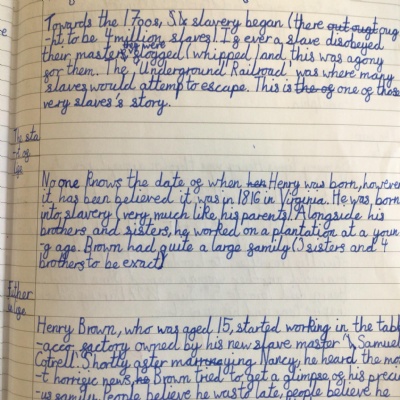 Towards the 1700s, slavery began (there out ought oug
-ht to be 4 million slaves). If ever a slave disobeyed
their masters, they were flogged (whipped) and this was agony
for them. The 'Underground Railroad' was where many
slaves would attempt to escape. This is the of one of these
very slaves's story.
The sta
-rt of
life
No one knows the date of when her Henry was born, however
it has been believed it was in 1816 in Virginia. He was born
into slavery (very much like his parents). Alongside his
brothers and sisters, he worked on a plantation at a youn
-g age. Brown had quite a large family (3 sisters and 4
brothers to be exact).
Further
Henry Brown, who was aged 15, started working in the tob
-acco factory owned by his new slave master 'Samuel
Cotrell'. Shortly after marrying Nancy, he heard the mo
-t horrific news, he Brown tried to get a glimpse of his preci
-us family. People believe he was to late, people believe he